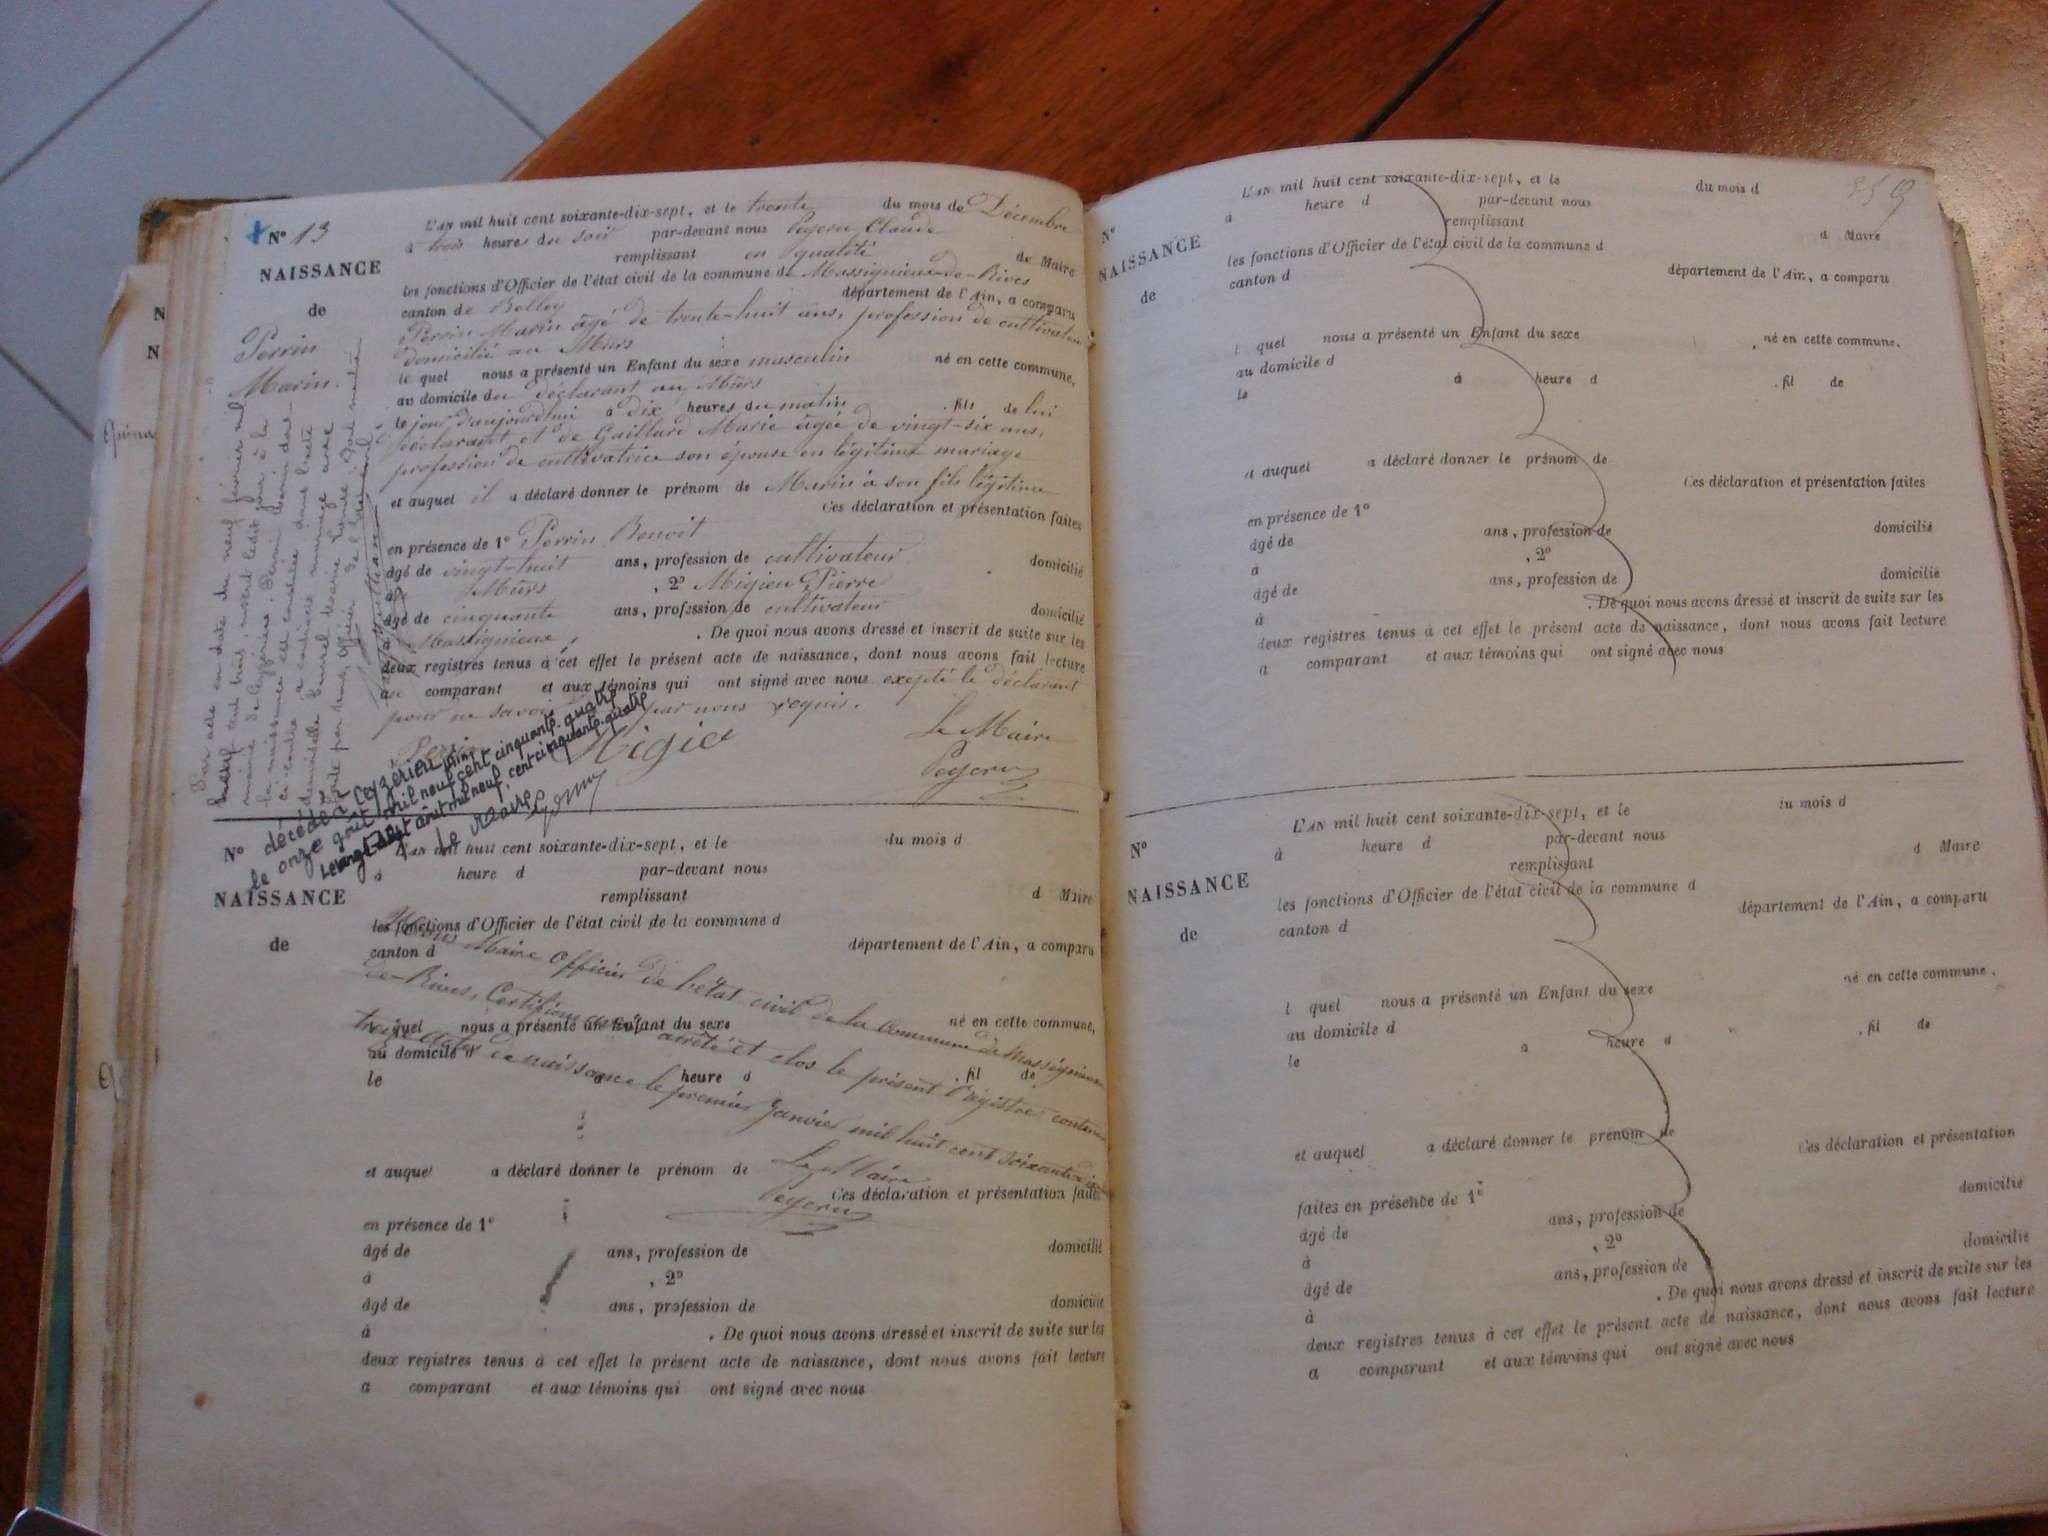 Nº 13
NAISSANCE
de
Perrin
Marin.
L'AN mil huit cent soixante-dix-sept, et le trente du mois de Décembre
à trois heures du soir par-devant nous Peycru Claude
remplissant en qualité de Maire
les fonctions d'Officier de l'état civil de la commune de Massignieu-de-Rives
canton de Belley département de l'Ain, a comparu
Perrin Marin âgé de trente-huit ans, profession de cultivateur
domicilié au Mûrs
le quel nous a présenté un Enfant du sexe masculin né en cette commune,
au domicile du déclarant au Mûrs
le jour d'aujourd'hui à dix heures du matin , fils de lui
déclarant et de Gaillard Marie âgée de vingt-six ans,
profession de cultivatrice son épouse en légitime mariage
et auquel il a déclaré donner le prénom de Marin à son fils légitime
Ces déclaration et présentation faites
en présence de 1º Perrin Benoit
âgé de vingt-huit ans, profession de cultivateur domicilié
Mûrs , 2º Migieu Pierre
âgé de cinquante ans, profession de cultivateur domicilié
Massignieux, . De quoi nous avons dressé et inscrit de suite sur les
deux registres tenus à cet effet le présent acte de naissance, dont nous avons fait lecture
au comparant et aux témoins qui ont signé avec nous excepté le déclarant
pour ne savoir par nous requis.
Le Maire
Peycru
Par acte en date du neuf février mil
neuf cent huit, inscrit ledit jour à la
mairie de Ceyzérieu, Perrin Marin dont
la naissance est constatée dans l'acte
ci-contre a contracté mariage avec
demoiselle
décédé à Ceyzérieu
le onze août mil neuf cent cinquante-quatre
Le août mil neuf cent cinquante-quatre
Le Maire
Nº
NAISSANCE
de
L'AN mil huit cent soixante-dix-sept, et le du mois d
à heure d par-devant nous
remplissant d Maire
les fonctions d'Officier de l'état civil de la commune d
canton d département de l'Ain, a comparu
Nous Maire Officier de l'état civil de la Commune de Massignieu
de-Rives, Certifions avoir arrêté et clos le présent registre contenant
treize actes de naissance le premier Janvier mil huit cent soixante dix
Le Maire
Peycru
quel nous a présenté un Enfant du sexe né en cette commune,
au domicile d
le à heure d , fil de
et auquel a déclaré donner le prénom de
Ces déclaration et présentation faites
en présence de 1º
âgé de ans, profession de domicilié
à , 2º
âgé de ans, profession de domicilié
à . De quoi nous avons dressé et inscrit de suite sur les
deux registres tenus à cet effet le présent acte de naissance, dont nous avons fait lecture
a comparant et aux témoins qui ont signé avec nous
Nº
NAISSANCE
de
L'AN mil huit cent soixante-dix-sept, et le du mois d
à heure d par-devant nous
remplissant d Maire
les fonctions d'Officier de l'état civil de la commune d
canton d département de l'Ain, a comparu
l quel nous a présenté un Enfant du sexe , né en cette commune.
au domicile d
le à heure d , fil de
a auquel a déclaré donner le prénom de
Ces déclaration et présentation faites
en présence de 1º
âgé de ans, profession de domicilié
à , 2º
âgé de ans, profession de domicilié
à . De quoi nous avons dressé et inscrit de suite sur les
deux registres tenus à cet effet le présent acte de naissance, dont nous avons fait lecture
a comparant et aux témoins qui ont signé avec nous
Nº
NAISSANCE
de
L'AN mil huit cent soixante-dix-sept, et le du mois d
à heure d par-devant nous
remplissant d Maire
les fonctions d'Officier de l'état civil de la commune d
canton d département de l'Ain, a comparu
l quel nous a présenté un Enfant du sexe né en cette commune.
au domicile d
le à heure d , fil de
et auquel a déclaré donner le prénom de
Ces déclaration et présentation
faites en présence de 1º
âgé de ans, profession de domicilié
à , 2º
âgé de ans, profession de domicilié
à . De quoi nous avons dressé et inscrit de suite sur les
deux registres tenus à cet effet le présent acte de naissance, dont nous avons fait lecture
a comparant et aux témoins qui ont signé avec nous